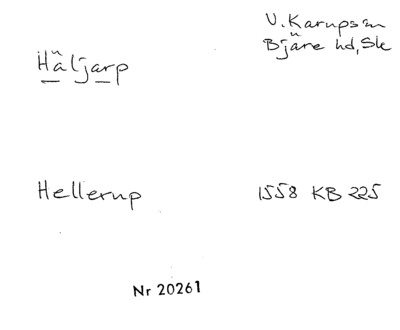 V. Karups sn
Bjäre hd, Sk
Häljarp
Hellerup 1558 KB 225
Nr 20261